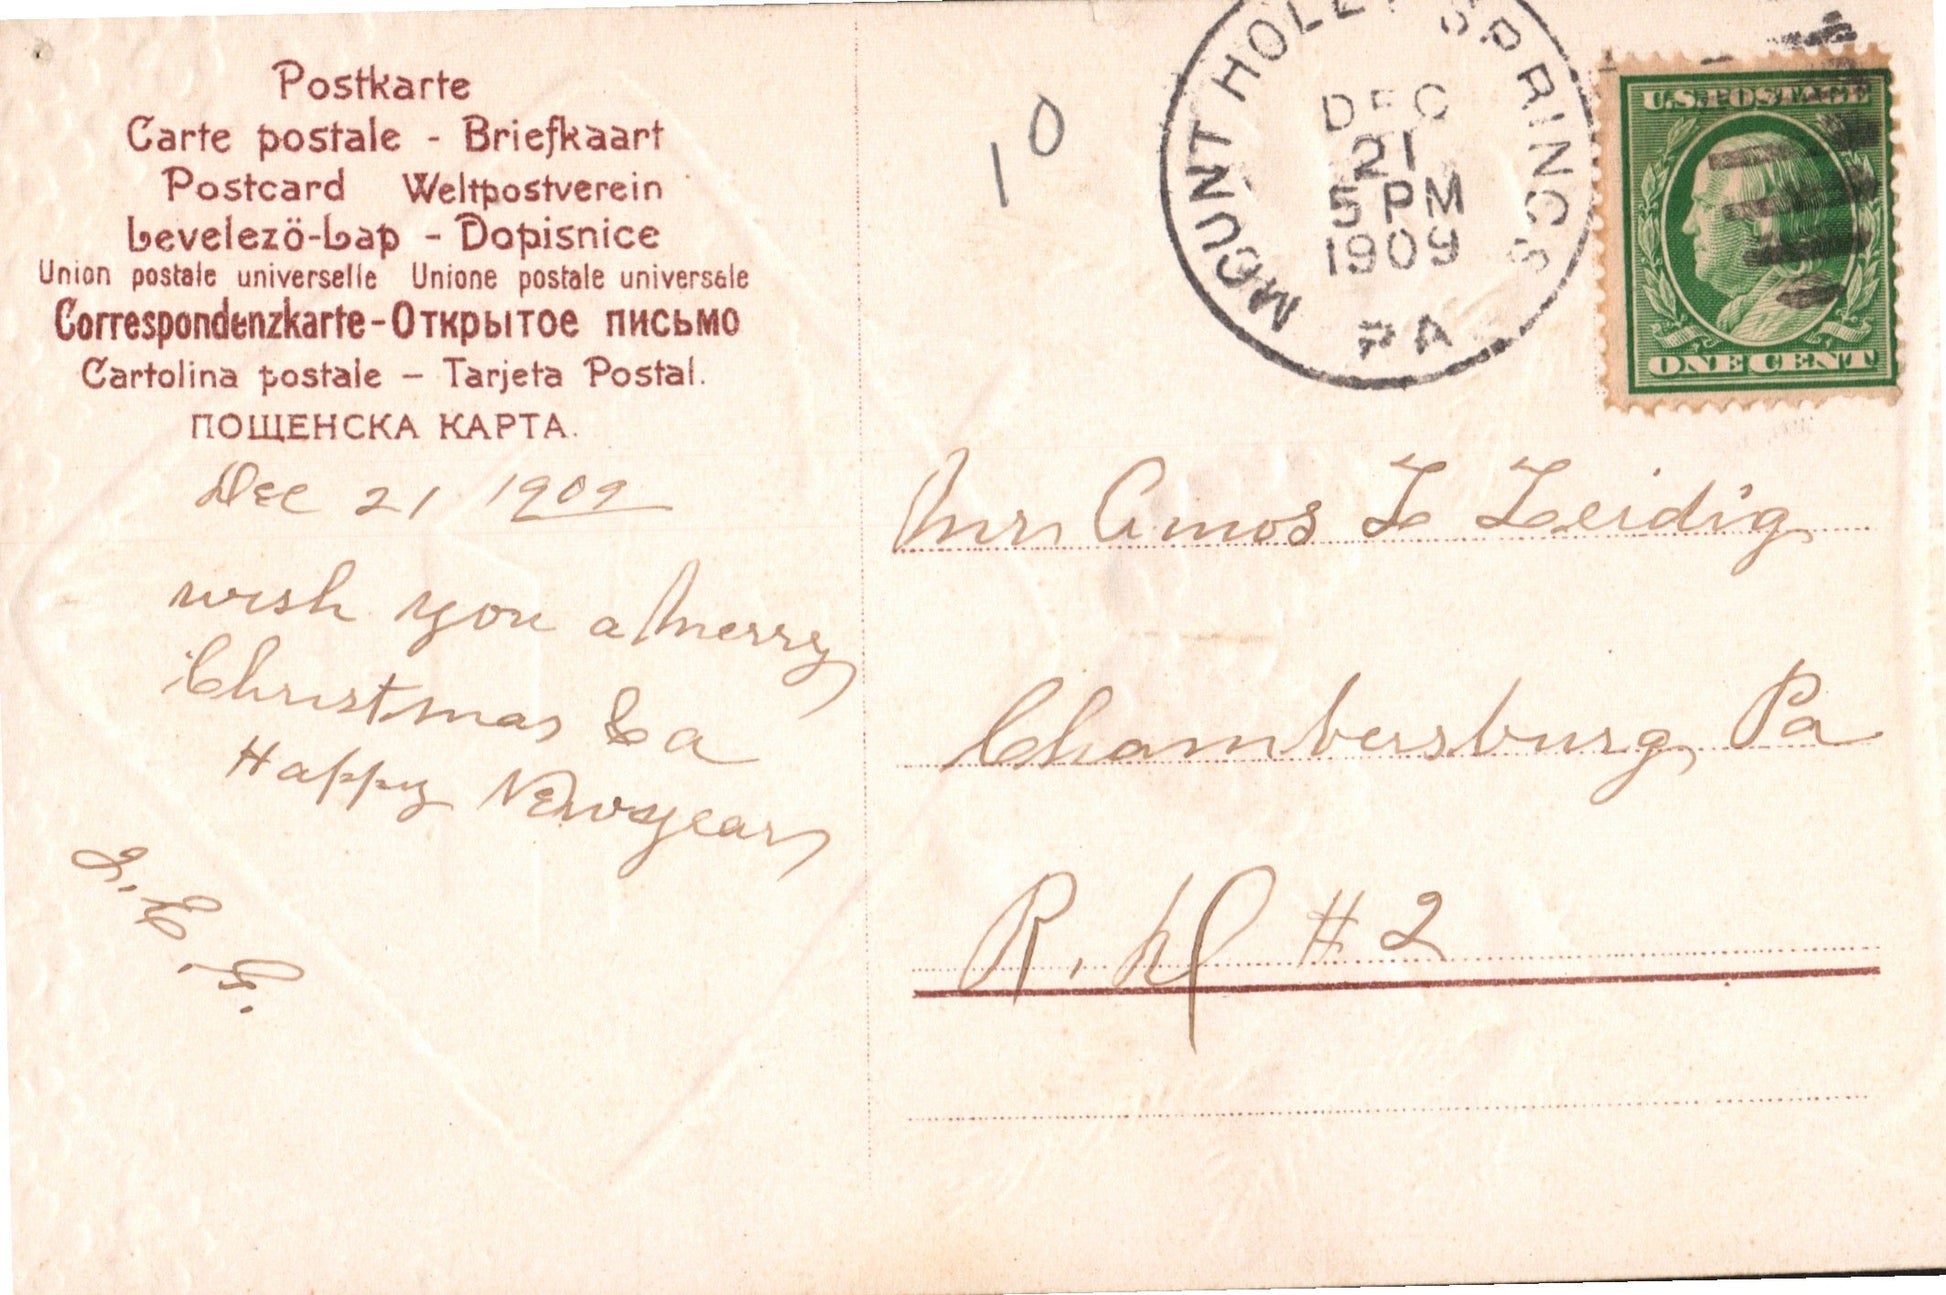 Postkarte
Carte postale - Briefkaart
Postcard Weltpostverein
Levelező-Lap - Dopisnice
Union postale universelle Unione postale universale
Correspondenzkarte - Открытое письмо
Cartolina postale - Tarjeta Postal.
ПОЩЕНСКА КАРТА.
Dec 21 1909
wish you a Merry
Christmas & a
Happy New year
L. E. G.
10
MOUNT HOLLY SPRINGS
DEC
21
5 PM
1909
PA
U.S. POSTAGE
ONE CENT
Mr Amos L Leidig
Chambersburg Pa
R. # 2